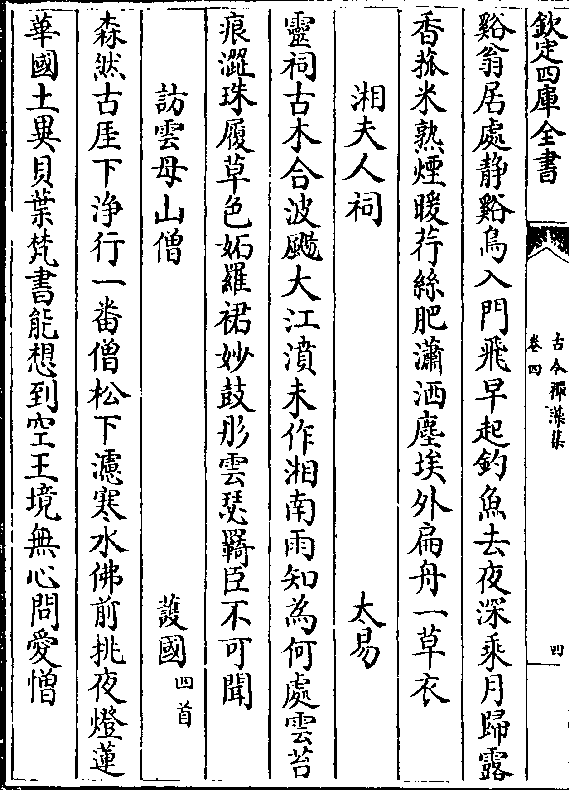 欽定四庫全書
古今禪藻集
卷四
四
谿翁居處静谿鳥入門飛早起釣魚去夜深乘月歸露
香菰米熟煙暖荇絲肥瀟洒塵埃外扁舟一草衣
湘夫人祠 太易
靈祠古木合波颺大江濆未作湘南雨知為何處雲苔
痕澀珠履草色妬羅裙妙鼓彤雲瑟羇臣不可聞
訪雲母山僧 䕶國四首
森然古厓下浄行一畨僧松下濾寒水佛前挑夜燈蓮
華國土異貝葉梵書能想到空王境無心問愛憎